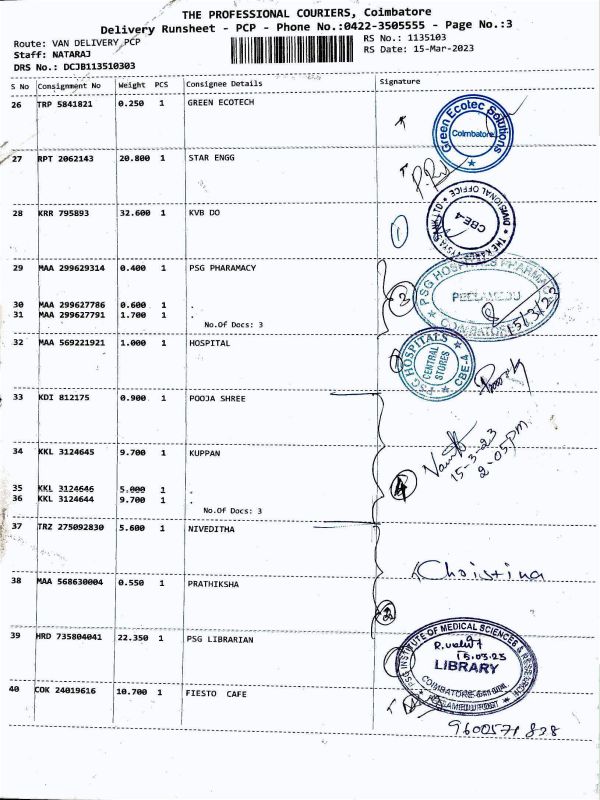 THE PROFESSIONAL COURIERS, Coimbatore
Delivery Runsheet - PCP - Phone No.:0422-3505555 - Page No.:3
Route: VAN DELIVERY PCP
RS No.: 1135103
Staff: NATARAJ
RS Date: 15-Mar-2023
DRS No.: DCJB113510303
S No Consignment No Weight PCS Consignee Details Signature
26 TRP 5841821 0.250 1 GREEN ECOTECH
Green Ecotec Solutions
Coimbatore
27 RPT 2062143 20.800 1 STAR ENGG
28 KRR 795893 32.600 1 KVB DO
1
DIVISIONAL OFFICE
CBE-4
29 MAA 299629314 0.400 1 PSG PHARAMACY
30 MAA 299627786 0.600 1 .
31 MAA 299627791 1.700 1 .
No.Of Docs: 3
3
PSG HOSPITALS PHARMACY
PEELAMEDU
COIMBATORE
15/3/23
32 MAA 569221921 1.000 1 HOSPITAL
PSG HOSPITALS
CENTRAL
STORES
CBE-4
33 KDI 812175 0.900 1 POOJA SHREE
34 KKL 3124645 9.700 1 KUPPAN
15-3-23
2.05pm
35 KKL 3124646 5.000 1 .
36 KKL 3124644 9.700 1 .
No.Of Docs: 3
4
37 TRZ 275092830 5.600 1 NIVEDITHA
Christina
38 MAA 568630004 0.550 1 PRATHIKSHA
2
39 HRD 735804041 22.350 1 PSG LIBRARIAN
PSG INSTITUTE OF MEDICAL SCIENCES & RESEARCH
15.03.23
LIBRARY
40 COK 24019616 10.700 1 FIESTO CAFE
9600571828